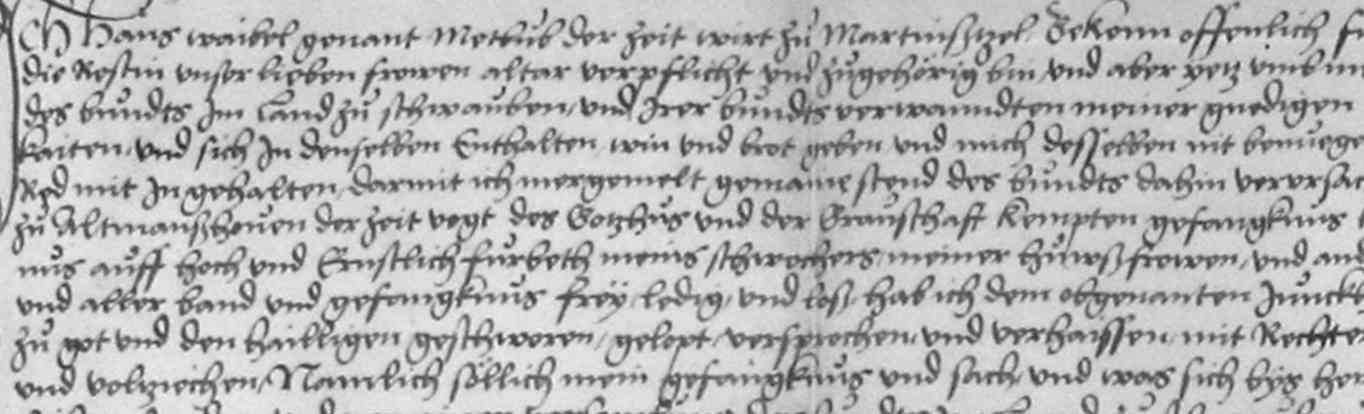 Ich Hans waibel genant Metkub der zeit wirt zů Martinszzel Bekenn offenlich
die Restin vnser lieben frowen altar verpflicht vnd zůgehörig bin vnd aber yetz vmb
des bundts Im Land zů schwauben vnd Irer bundts verwanndten meiner gnedigen
kaiten vnd sich In denselben Enthalten win vnd brot geben vnd mich desselben nit benuege
Red mit In gehalten darmit ich mergemelt gemaine stend des bundts dahin verursac
zů Altmanßhouen der zeit vogt des Gotzhus vnd der Grauschaft Kempten gefangknus
nus auff hoch vnd Ernstlich fürbeth meins schwechers meiner hußfrowen vnd and
vnd aller band vnd gefangknus frey ledig vnd loß hab ich dem obgenanten Junckh
zů got vnd den hailligen geschworen gelopt versprochen vnd verhaissen mit Rechte
vnd volziechen Namlich söllich mein gefangknus vnd sach vnd was sich byß her